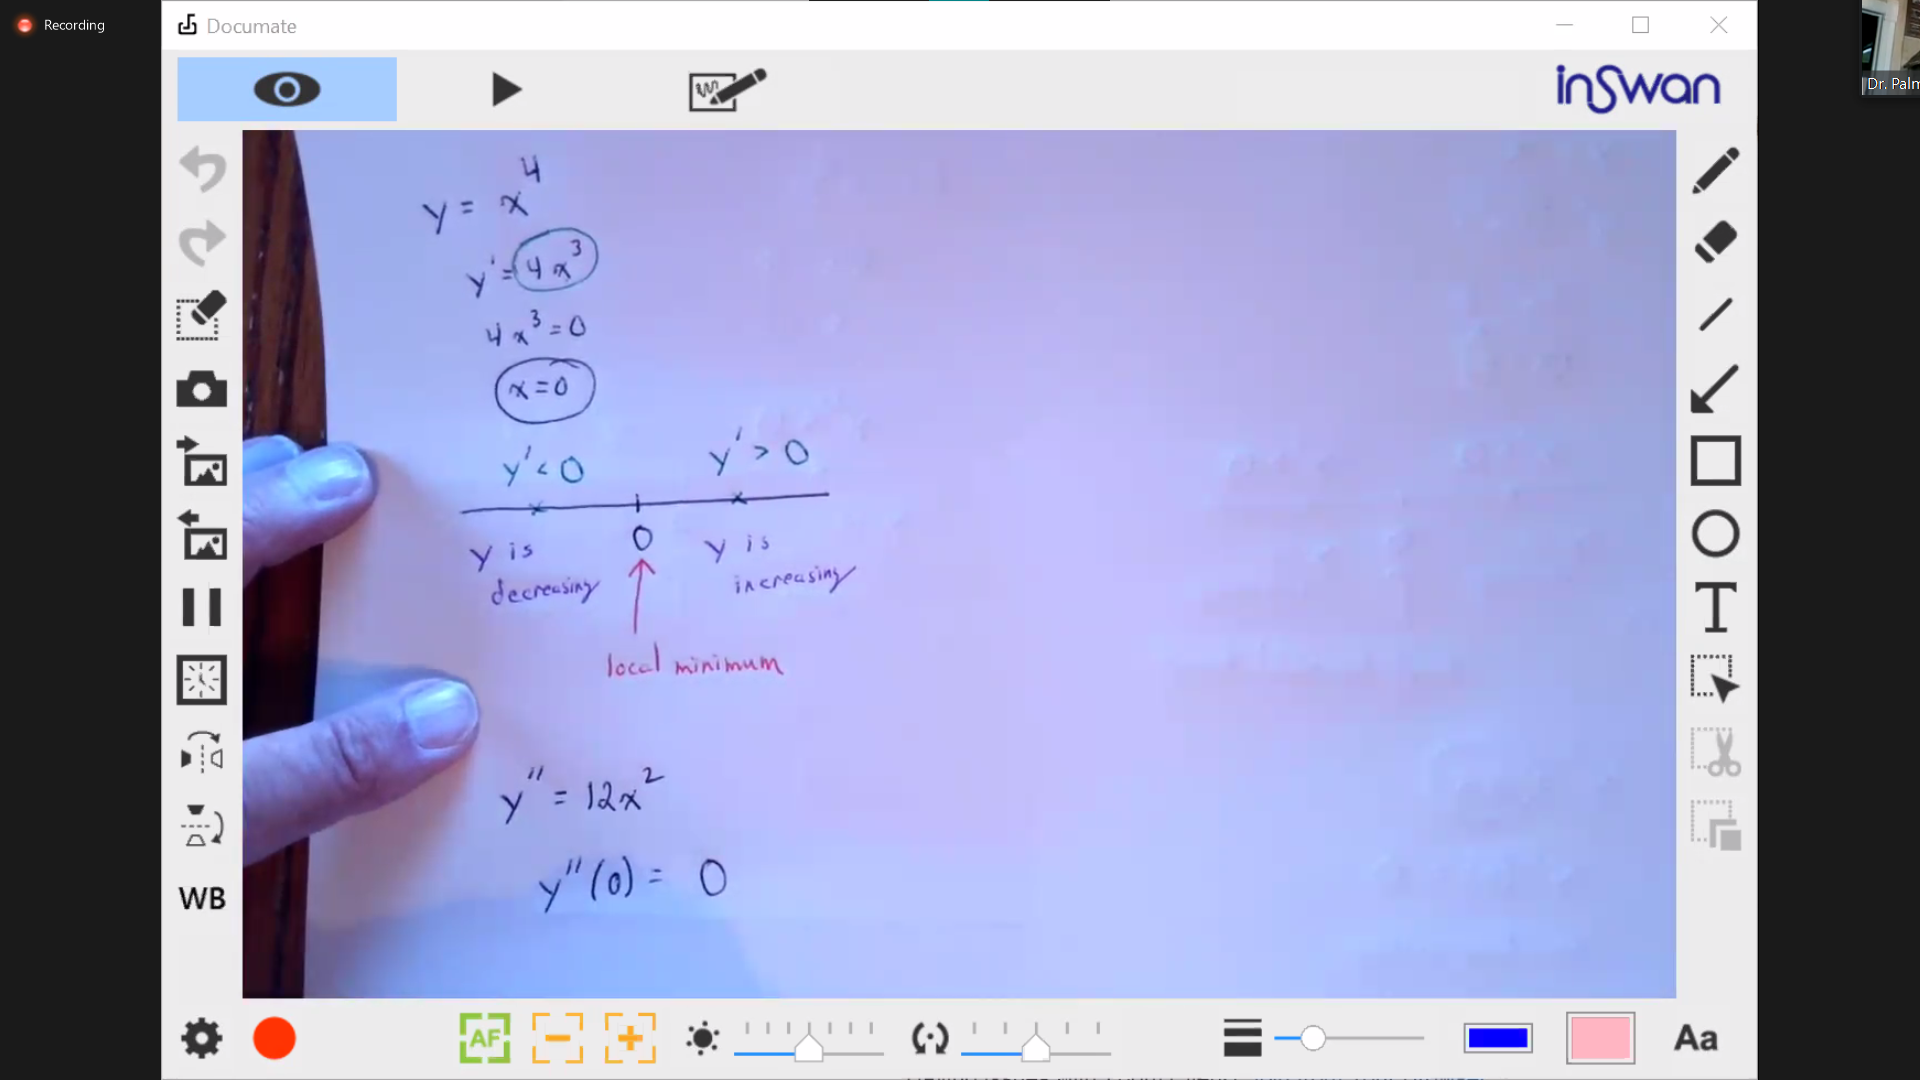 Recording
Documate
inSwan
Dr. Palm
y = x⁴
y' = 4x³
4x³ = 0
x = 0
y' < 0 y' > 0
0
y is decreasing
y is increasing
local minimum
y'' = 12x²
y''(0) = 0
T
WB
AF
Aa